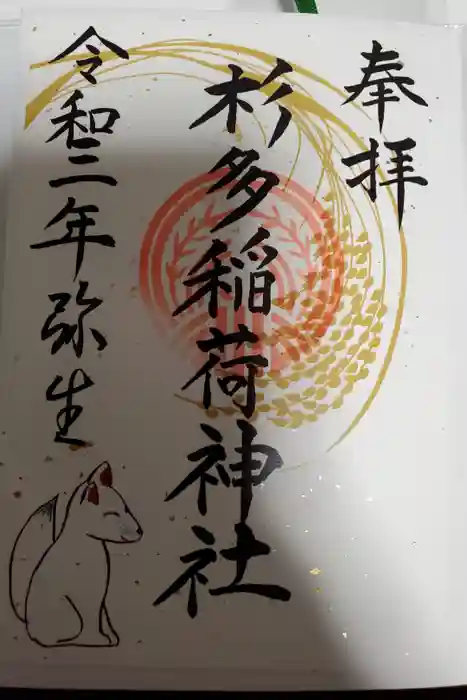 奉拝
杉多稲荷神社
令和二年弥生